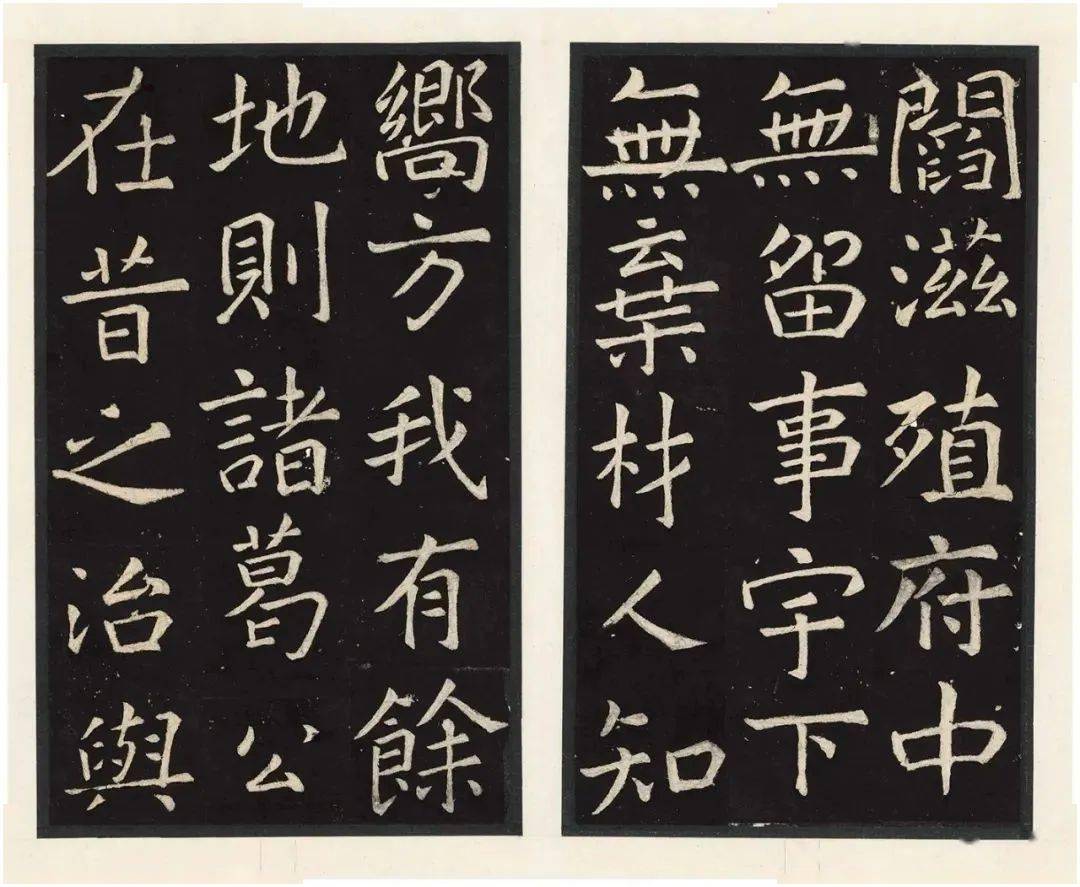 閻滋殖府中
無留事宇下
無棄材人知
嚮方我有餘
地則諸葛公
在昔之治與